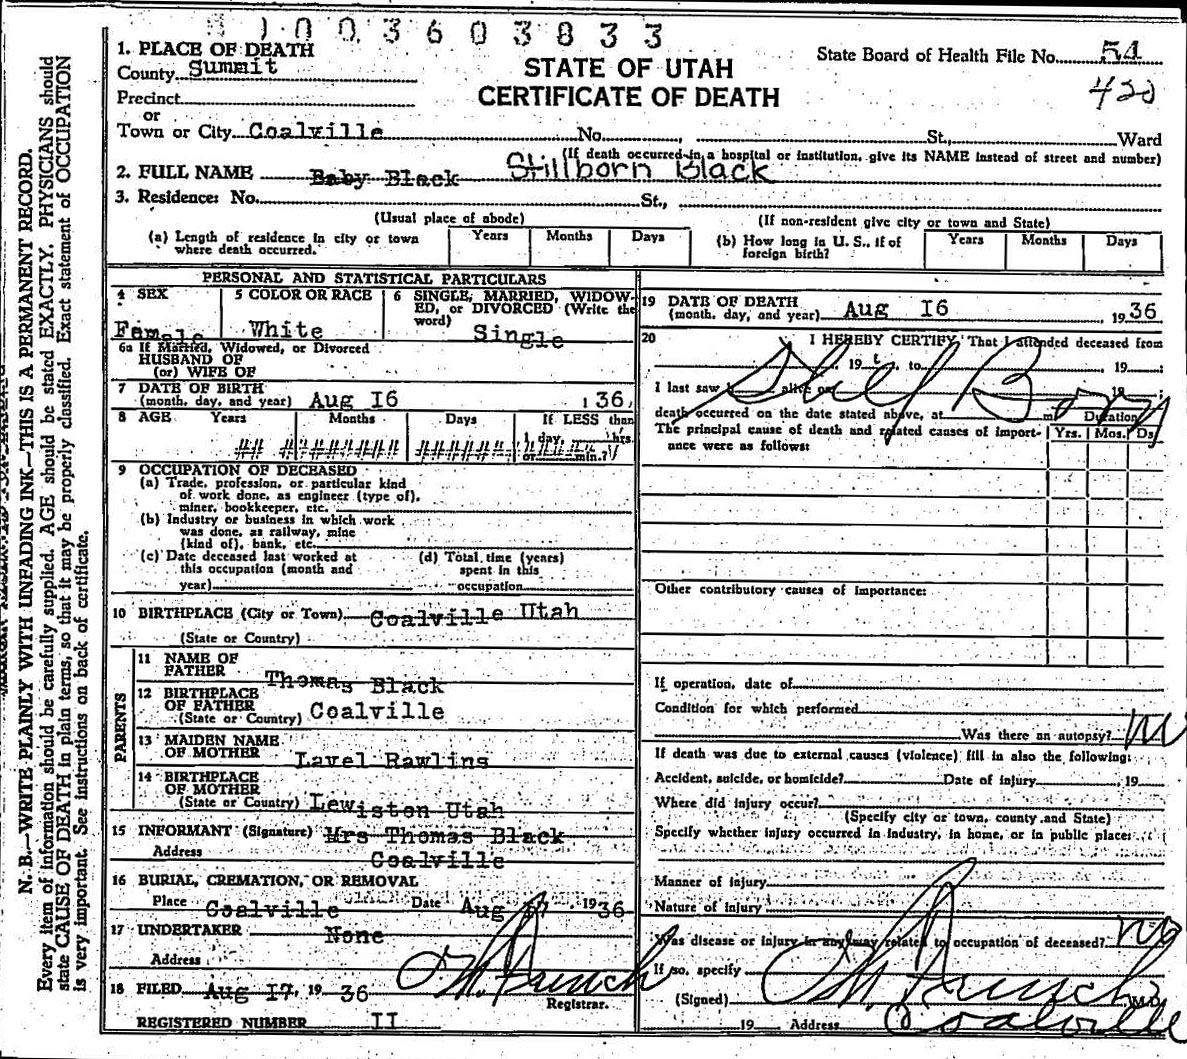 1003603833
1. PLACE OF DEATH
County Summit
STATE OF UTAH
CERTIFICATE OF DEATH
State Board of Health File No. 54
420
Precinct
or
Town or City Coalville No. , St., Ward
(If death occurred in a hospital or institution, give its NAME instead of street and number)
2. FULL NAME Baby Black Stillborn Black
3. Residence: No. St.,
(Usual place of abode) (If non-resident give city or town and State)
(a) Length of residence in city or town where death occurred. Years Months Days
(b) How long in U. S., if of foreign birth? Years Months Days
PERSONAL AND STATISTICAL PARTICULARS
4 SEX
Female
5 COLOR OR RACE
White
6 SINGLE, MARRIED, WIDOW-
ED, or DIVORCED (Write the
word) Single
6a If Married, Widowed, or Divorced
HUSBAND OF
(or) WIFE OF
7 DATE OF BIRTH
(month, day, and year) Aug 16 36
8 AGE Years Months Days If LESS than
1 day, hrs.
or min.?
9 OCCUPATION OF DECEASED
(a) Trade, profession, or particular kind
of work done, as engineer (type of),
miner, bookkeeper, etc.
(b) Industry or business in which work
was done, as railway, mine
(kind of), bank, etc.
(c) Date deceased last worked at
this occupation (month and
year)
(d) Total time (years)
spent in this
occupation
10 BIRTHPLACE (City or Town) Coalville Utah
(State or Country)
PARENTS
11 NAME OF
FATHER Thomas Black
12 BIRTHPLACE
OF FATHER
(State or Country) Coalville
13 MAIDEN NAME
OF MOTHER Lavel Rawlins
14 BIRTHPLACE
OF MOTHER
(State or Country) Lewiston Utah
15 INFORMANT (Signature) Mrs Thomas Black
Address Coalville
16 BURIAL, CREMATION, OR REMOVAL
Place Coalville Date Aug 17 1936
17 UNDERTAKER None
Address
18 FILED Aug 17, 1936
Registrar.
REGISTERED NUMBER 11
19 DATE OF DEATH
(month, day, and year) Aug 16 , 1936
20 I HEREBY CERTIFY, That I attended deceased from
, 19 , to , 19 ;
I last saw h alive on 19
Still Born
death occurred on the date stated above, at m. Duration
The principal cause of death and related causes of import-
ance were as follows:
Yrs. Mos. Ds.
Other contributory causes of importance:
If operation, date of
Condition for which performed
Was there an autopsy? no
If death was due to external causes (violence) fill in also the following:
Accident, suicide, or homicide? Date of injury , 19
Where did injury occur?
(Specify city or town, county and State)
Specify whether injury occurred in industry, in home, or in public place:
Manner of injury
Nature of injury
Was disease or injury in any way related to occupation of deceased? no
If so, specify
(Signed) M.D.
19 Address Coalville
N. B.—WRITE PLAINLY WITH UNFADING INK—THIS IS A PERMANENT RECORD.
Every item of information should be carefully supplied. AGE should be stated EXACTLY. PHYSICIANS should
state CAUSE OF DEATH in plain terms, so that it may be properly classified. Exact statement of OCCUPATION
is very important. See instructions on back of certificate.